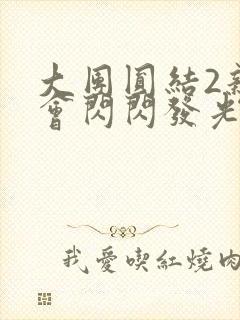 大團圓結2新
會閃閃發光
我愛喫紅燒肉